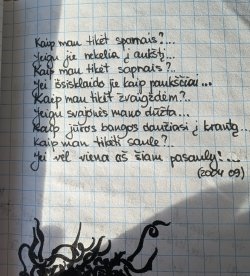 Kaip man tikėt sparnais?...
Jeigu jie nekelia į aukštį...
Kaip man tikėt sapnais?...
Jei išsisklaido jie kaip paukščiai...
Kaip man tikėt žvaigždėm?..
Jeigu svajonės mano dūžta...
Kaip jūros bangos daužiasi į krantą
Kaip man tikėti saule?..
Jei vėl viena aš šiam pasauly!...
(2004 09)